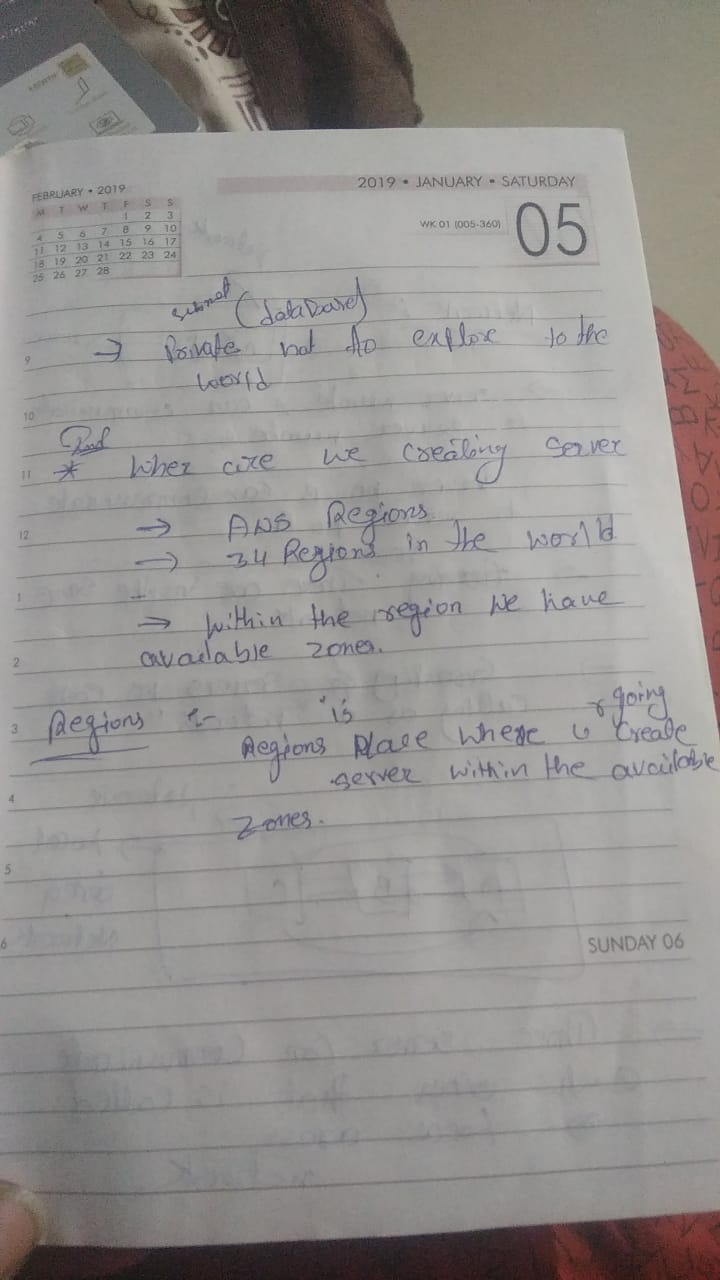 FEBRUARY • 2019
M T W T F S S
1 2 3
4 5 6 7 8 9 10
11 12 13 14 15 16 17
18 19 20 21 22 23 24
25 26 27 28
2019 • JANUARY • SATURDAY
WK 01 (005-360)
05
subnet (database)
9 → Private not to explore to the
world
10
2nd
11 * wher are we creating server
12 → AWS Regions
→ 34 Regions in the world
1
→ within the region we have
2 available zones.
3 Regions :- is going
Regions place where create
4 server within the available
zones.
5
6 SUNDAY 06